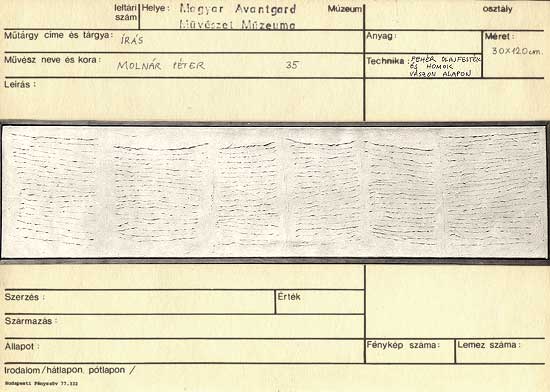 leltári szám
Helye: Magyar Avantgard Művészet Múzeuma Múzeum osztály
Műtárgy címe és tárgya: ÍRÁS
Anyag:
Méret: 30x120cm.
Művész neve és kora: MOLNÁR PÉTER 35
Technika: FEHÉR OLAJFESTÉK ÉS HOMOK VÁSZON ALAPON
Leírás:
Szerzés:
Érték
Származás:
Állapot:
Fénykép száma:
Lemez száma:
Irodalom/hátlapon, pótlapon /
Budapesti Fényszöv 77.332